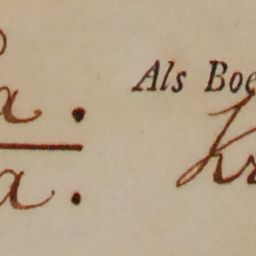 a.
Als Boe
a.
Kr